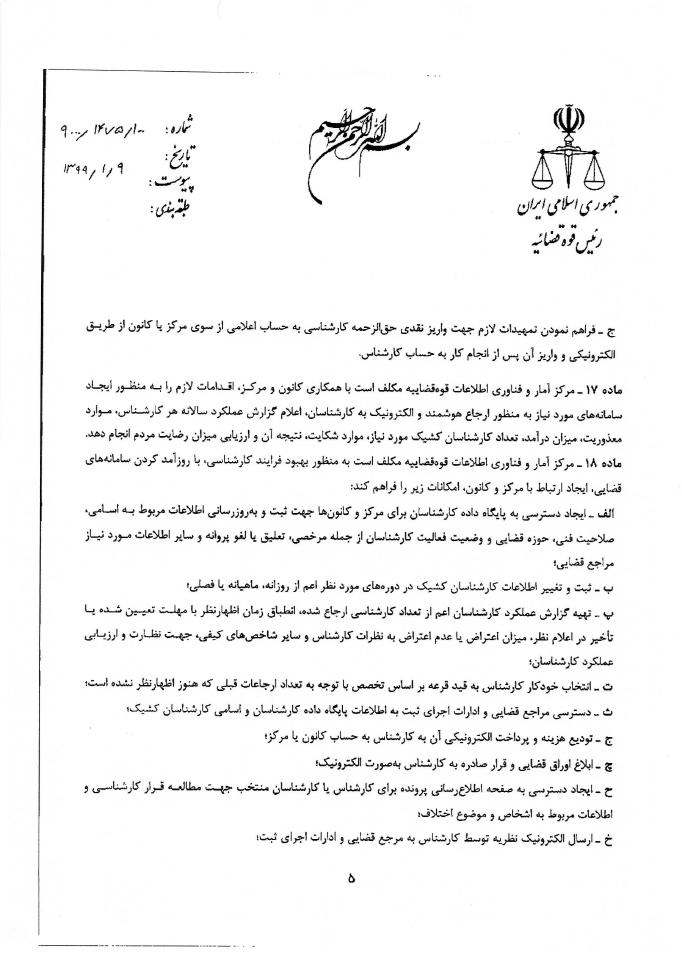 بسم الله الرحمن الرحیم
جمهوری اسلامی ایران
رئیس قوه قضائیه
شماره: ۹۰۰۰/۱۴۷۵/۱۰۰
تاریخ: ۱۳۹۹/۱/۹
پیوست:
طبقه بندی:
ج ـ فراهم نمودن تمهیدات لازم جهت واریز نقدی حق‌الزحمه کارشناسی به حساب اعلامی از سوی مرکز یا کانون از طریق
الکترونیکی و واریز آن پس از انجام کار به حساب کارشناس.
ماده ۱۷ ـ مرکز آمار و فناوری اطلاعات قوه‌قضاییه مکلف است با همکاری کانون و مرکز، اقدامات لازم را به منظور ایجاد
سامانه‌های مورد نیاز به منظور ارجاع هوشمند و الکترونیک به کارشناسان، اعلام گزارش عملکرد سالانه هر کارشناس، موارد
معذوریت، میزان درآمد، تعداد کارشناسان کشیک مورد نیاز، موارد شکایت، نتیجه آن و ارزیابی میزان رضایت مردم انجام دهد.
ماده ۱۸ ـ مرکز آمار و فناوری اطلاعات قوه‌قضاییه مکلف است به منظور بهبود فرایند کارشناسی، با روزآمد کردن سامانه‌های
قضایی، ایجاد ارتباط با مرکز و کانون، امکانات زیر را فراهم کند:
الف ـ ایجاد دسترسی به پایگاه داده کارشناسان برای مرکز و کانون‌ها جهت ثبت و به‌روزرسانی اطلاعات مربوط به اسامی،
صلاحیت فنی، حوزه قضایی و وضعیت فعالیت کارشناسان از جمله مرخصی، تعلیق یا لغو پروانه و سایر اطلاعات مورد نیاز
مراجع قضایی؛
ب ـ ثبت و تغییر اطلاعات کارشناسان کشیک در دوره‌های مورد نظر اعم از روزانه، ماهیانه یا فصلی؛
پ ـ تهیه گزارش عملکرد کارشناسان اعم از تعداد کارشناسی ارجاع شده، انطباق زمان اظهارنظر با مهلت تعیین شده یا
تأخیر در اعلام نظر، میزان اعتراض یا عدم اعتراض به نظرات کارشناس و سایر شاخص‌های کیفی، جهت نظارت و ارزیابی
عملکرد کارشناسان؛
ت ـ انتخاب خودکار کارشناس به قید قرعه بر اساس تخصص با توجه به تعداد ارجاعات قبلی که هنوز اظهارنظر نشده است؛
ث ـ دسترسی مراجع قضایی و ادارات اجرای ثبت به اطلاعات پایگاه داده کارشناسان و اسامی کارشناسان کشیک؛
ج ـ تودیع هزینه و پرداخت الکترونیکی آن به کارشناس به حساب کانون یا مرکز؛
چ ـ ابلاغ اوراق قضایی و قرار صادره به کارشناس به‌صورت الکترونیک؛
ح ـ ایجاد دسترسی به صفحه اطلاع‌رسانی پرونده برای کارشناس یا کارشناسان منتخب جهت مطالعه قرار کارشناسی و
اطلاعات مربوط به اشخاص و موضوع اختلاف؛
خ ـ ارسال الکترونیک نظریه توسط کارشناس به مرجع قضایی و ادارات اجرای ثبت؛
۵